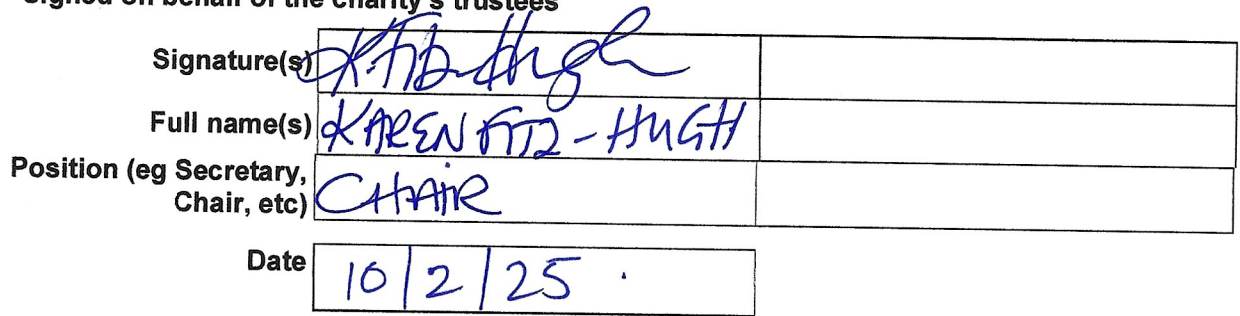 Signed on behalf of the charity's trustees
Signature(s) K Fitz-Hugh
Full name(s) KAREN FITZ-HUGH
Position (eg Secretary,
Chair, etc) CHAIR
Date 10/2/25